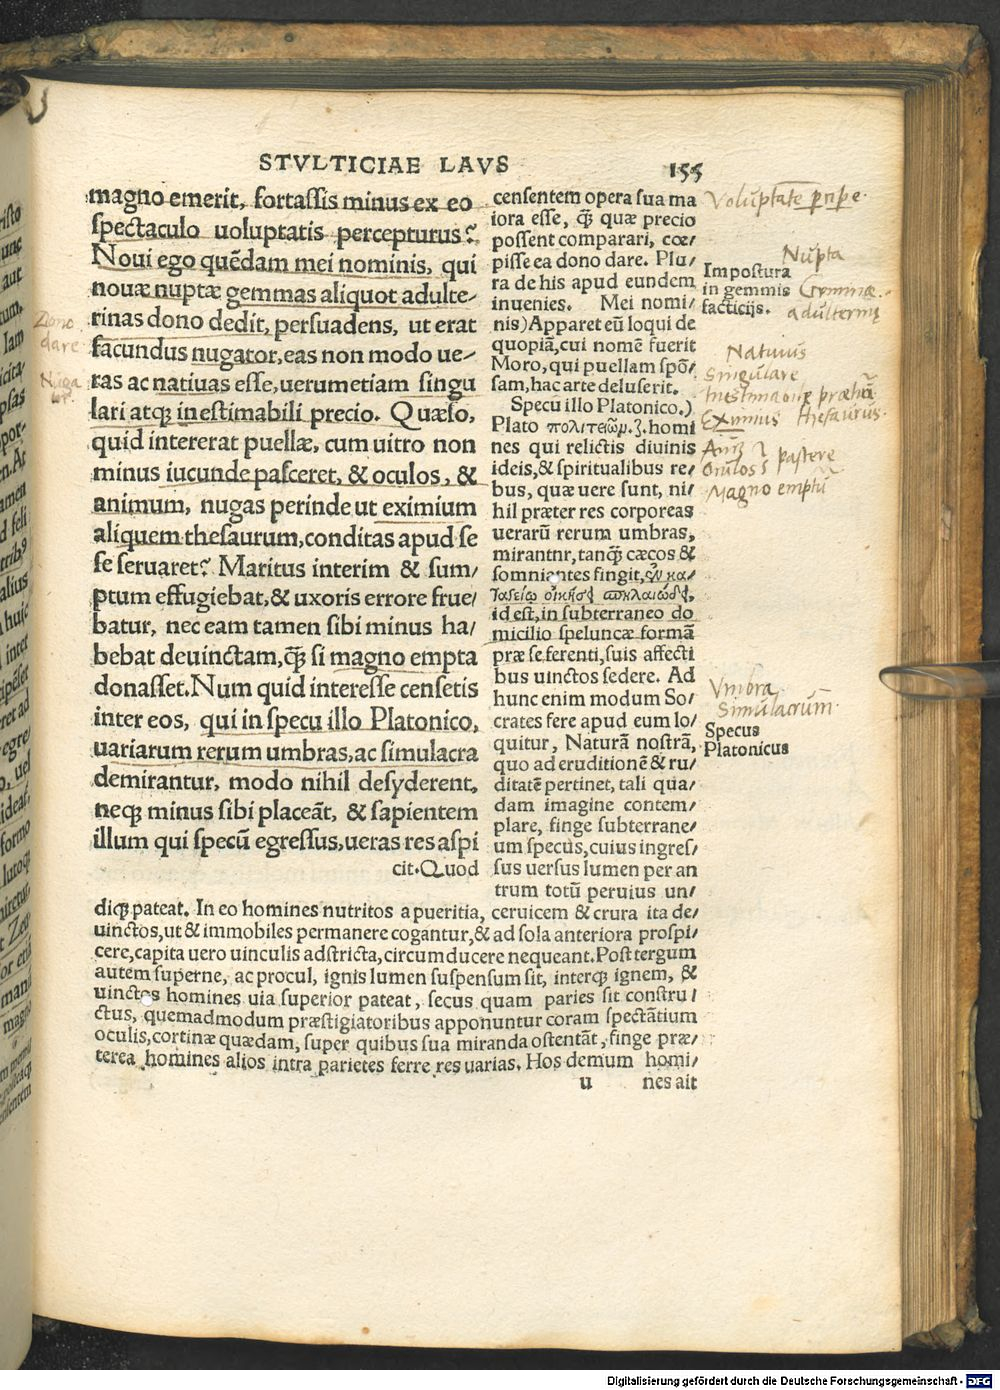 STVLTICIAE LAVS
155
magno emerit, fortassis minus ex eo
spectaculo uoluptatis percepturus?
Noui ego quẽdam mei nominis, qui
nouæ nuptæ gemmas aliquot adulte/
rinas dono dedit, persuadens, ut erat
facundus nugator, eas non modo ue/
ras ac natiuas esse, uerumetiam singu
lari atq; inestimabili precio. Quæso,
quid intererat puellæ, cum uitro non
minus iucunde pasceret, & oculos, &
animum, nugas perinde ut eximium
aliquem thesaurum, conditas apud se
se seruaret? Maritus interim & sum/
ptum effugiebat, & uxoris errore frue/
batur, nec eam tamen sibi minus ha/
bebat deuinctam, q̃ si magno empta
donasset. Num quid interesse censetis
inter eos, qui in specu illo Platonico,
uariarum rerum umbras, ac simulacra
demirantur, modo nihil desyderent,
neq; minus sibi placeãt, & sapientem
illum qui specũ egressus, ueras res aspi
cit. Quod
censentem opera sua ma
iora esse, q̃ quæ precio
possent comparari, cœ/
pisse ea dono dare. Plu/
ra de his apud eundem
inuenies. Mei nomi/
nis) Apparet eũ loqui de
quopiã, cui nomẽ fuerit
Moro, qui puellam spõ/
sam, hac arte deluserit.
Specu illo Platonico.)
Plato πολιτειῶμ. ʒ. homi
nes qui relictis diuinis
ideis, & spiritualibus re/
bus, quæ uere sunt, ni/
hil præter res corporeas
uerarũ rerum umbras,
mirantnr, tanq̃ cæcos &
somniantes fingit,
id est, in subterraneo do
micilio speluncæ formã
præ se ferenti, suis affecti
bus uinctos sedere. Ad
hunc enim modum So/
crates fere apud eum lo/
quitur, Naturã nostrã,
quo ad eruditionẽ & ru/
ditatẽ pertinet, tali qua/
dam imagine contem/
plare, finge subterrane/
um specus, cuius ingres/
sus uersus lumen per an
trum totũ peruius un/
diq; pateat. In eo homines nutritos a pueritia, ceruicem & crura ita de/
uinctos, ut & immobiles permanere cogantur, & ad sola anteriora prospi/
cere, capita uero uinculis adstricta, circumducere nequeant. Post tergum
autem superne, ac procul, ignis lumen suspensum sit, interq; ignem, &
uinctos homines uia superior pateat, secus quam paries sit constru/
ctus, quemadmodum præstigiatoribus apponuntur coram spectãtium
oculis, cortinæ quædam, super quibus sua miranda ostentãt, finge præ/
terea homines alios intra parietes ferre res uarias. Hos demum homi/
u nes ait
Impostura
in gemmis
facticijs.
Specus
Platonicus
Dono
dare
Nuga
tor
Voluptatẽ
Nupta
Gemmæ
adulterinæ
Natiuus
Singulare
Inestimabile
Eximius thesaurus
Oculos pascere
Magno emptũ
Vmbra
Simulacrum
Digitalisierung gefördert durch die Deutsche Forschungsgemeinschaft - DFG